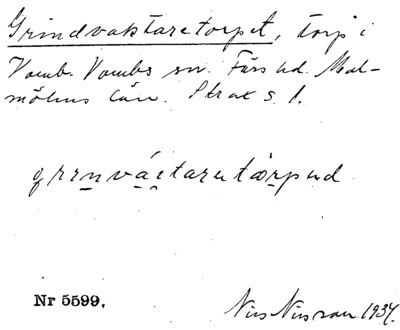 Grindvaktaretorpet, torp i
Vomb. Vombs sn. Färs hd. Mal-
möhus län. Strax s. l.
grɪnvák̯taretorpəd
Nr 5599.
Nils Nilsson 1937.